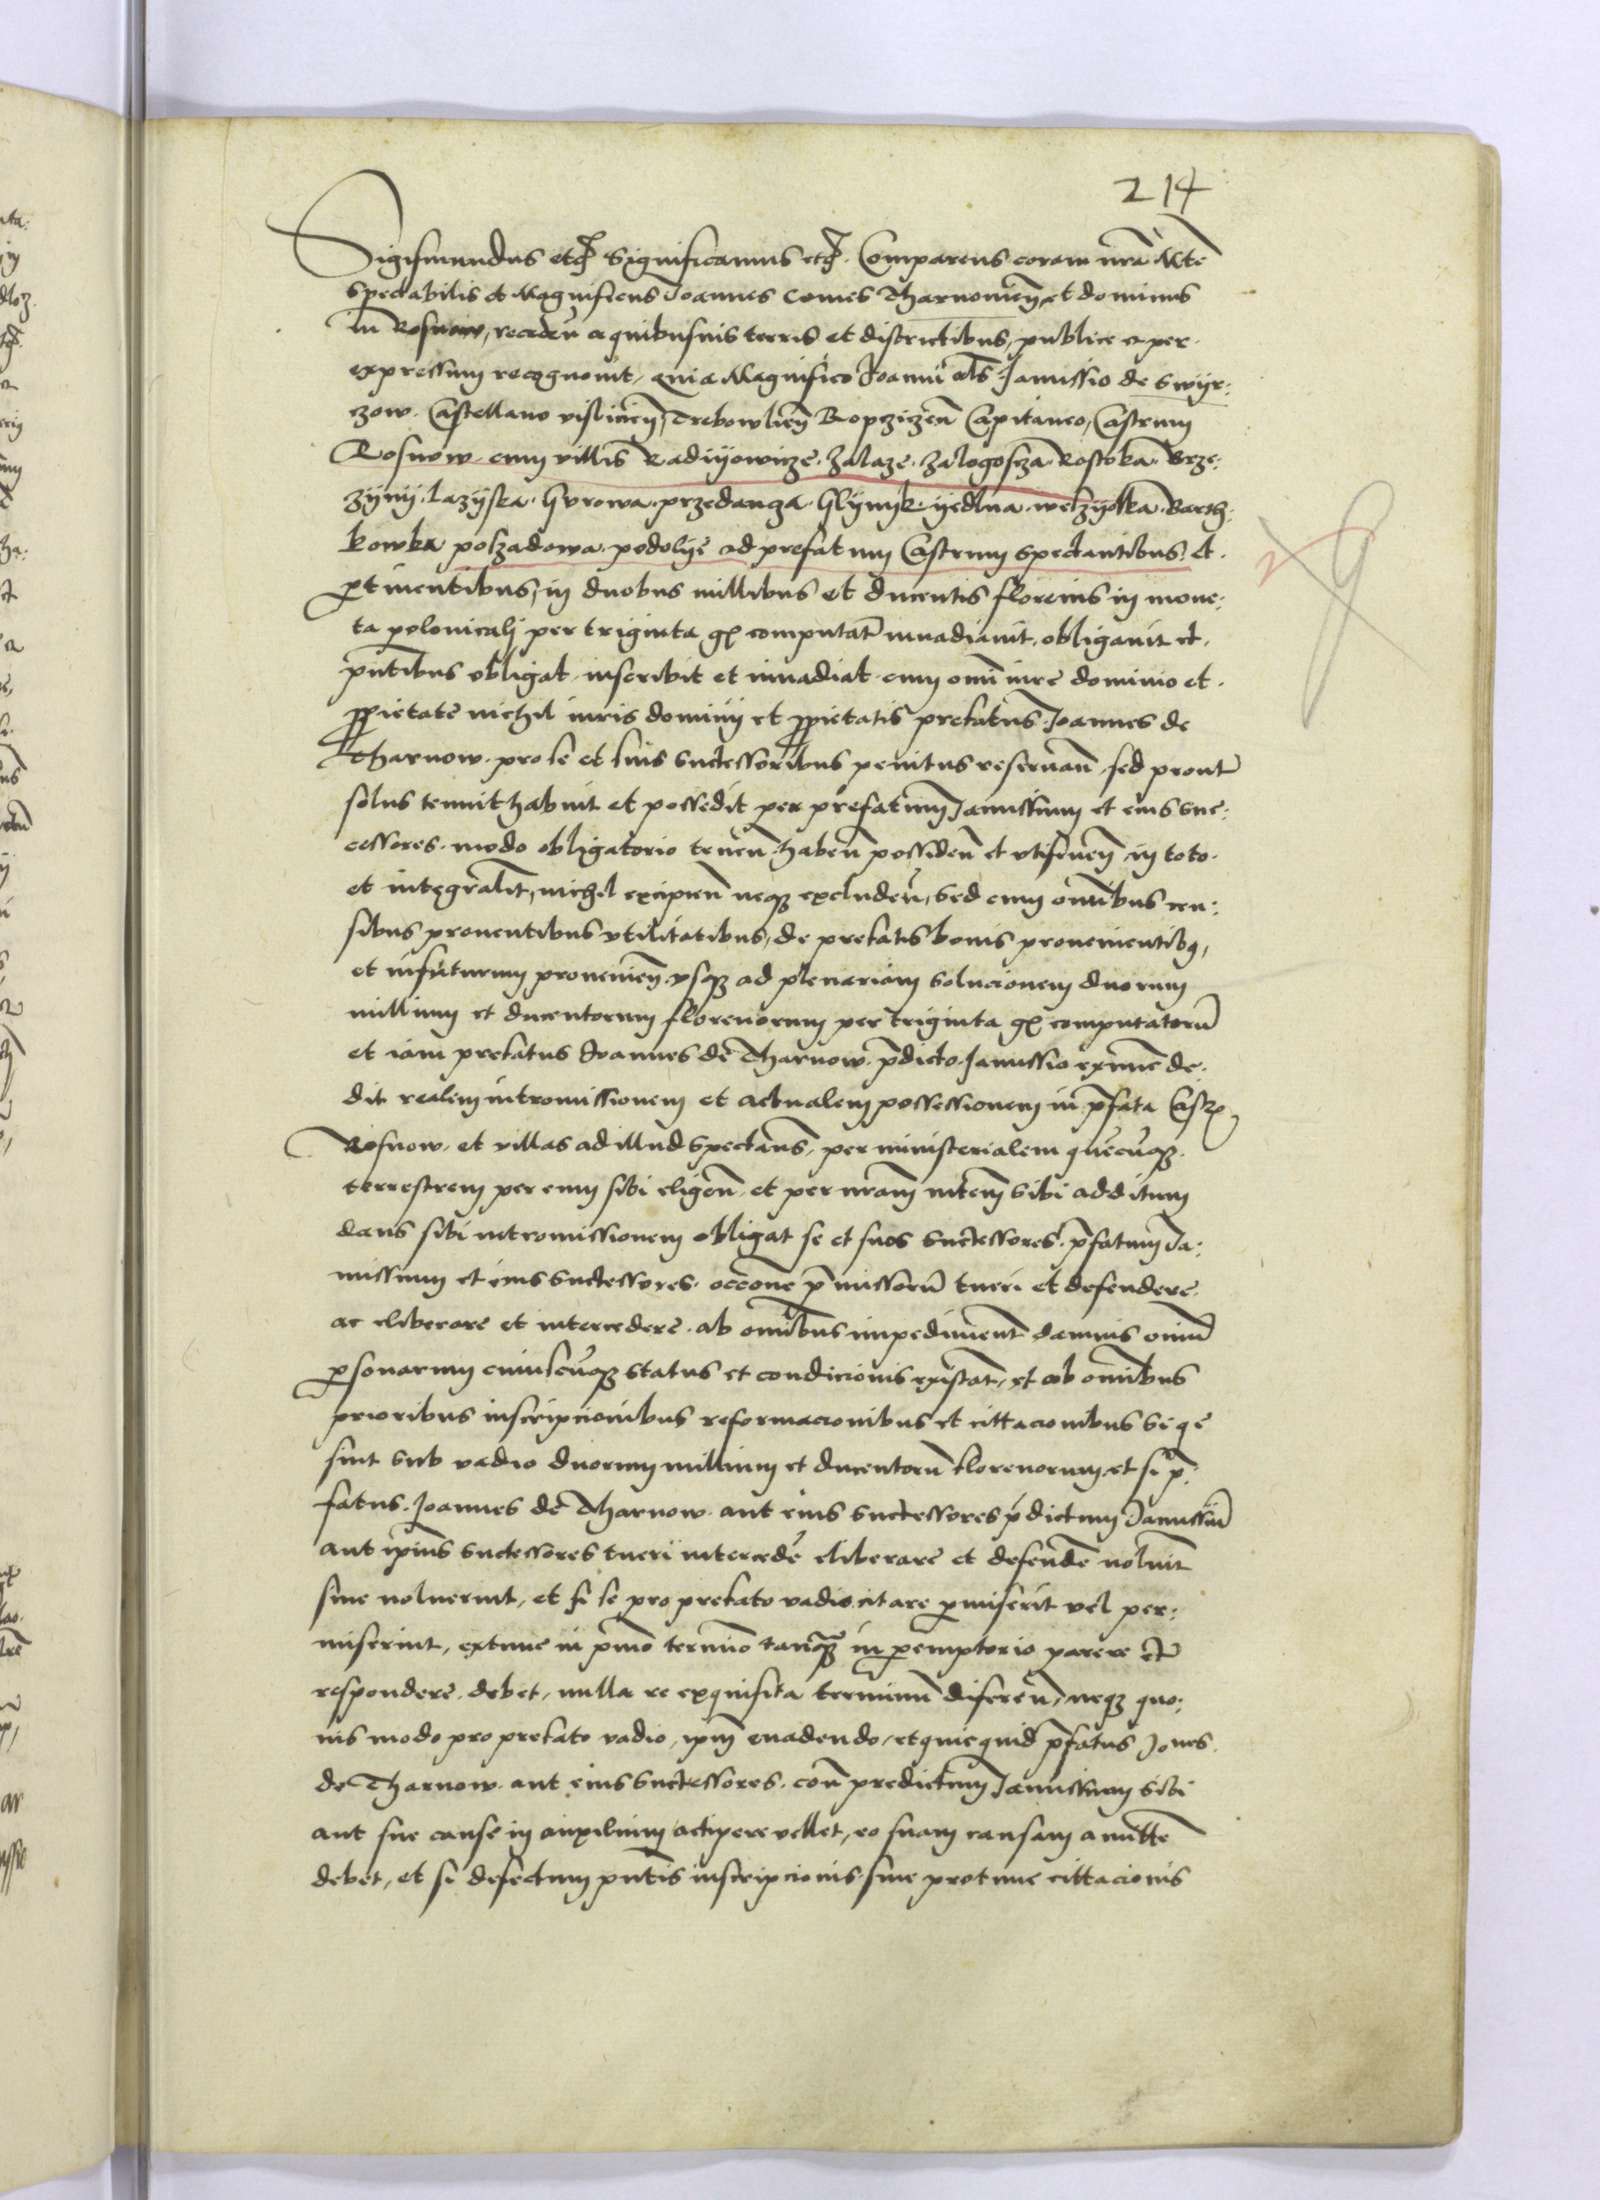 214
Sigismundus etc Significamus etc. Comparens coram nrã Mte
spectabilis et Magnificus Joannes Comes Tharnovieñ et dominus
in Rosnow, recedeñ a quibusuis terris et districtibus, publice et per
expressum recognouit, quia Magnifico Joanni als Janussio de Swyr:
czow Castellano visliciẽn, Trebowlieñ Ropczicen Capitaneo, Castrum
Rosnow cum villis Radiyowicze. Zalaze. Zalogoscza. Rostoka. Brze:
zyny. Lazyska. Gurowa. przedanza. Glynyk. yedlna. welzyolka. Barth:
kowka polzadowa. podolye ad prefatum Castrum spectantibus et
ptinentibus, in duobus millibus et ducentis florenis in mone:
ta polonicali per triginta gr computat inuadiauit. obligauit et
pntibus obligat. inscribit et inuadiat. cum omi iure dominio et
pprietate nichil iuris dominii et pprietatis prefatus Joannes de
Tharnow. pro se et suis successoribus penitus reseruañ, sed prout
solus tenuit habuit et possedit per prefatum Janussium et eius suc:
cessores. modo obligatorio teneñ. habeñ possideñ et vtifrueñ in toto
et integralit, nichil excipieñ neqz excludeñ, sed cum omibus cen:
sibus prouentibus vtilitatibus, de prefatis bonis prouenientibq,
et infuturum prouenieñ. vsqz ad plenariam solucionem duorum
millium et ducentorum florenorum per triginta gr computatoru
et iam prefatus Joannes de Tharnow. pdicto Janussio extunc de:
dit realem intromissionem et actualem possessionem in pfata Castr
Rosnow. et villas ad illud spectans, per ministerialem quecuqz
terrestrem per eum sibi eligeñ. et per nram mtem sibi additum
dans sibi intromissionem obligat se et suos successores. pfatum Ja:
nussium et eius successores. occone pmissoru tueri et defendere
ac eliberare et intercedere. ab omibus impediment damnis oniu
psonarum cuiuscuqz status et condicionis existat, et ab omnibus
prioribus inscripcionibus reformacionibus et cittacionibus si qe
sint sub vadio duorum millium et ducentoru florenorum et si p:
fatus Joannes de Tharnow. aut eius successores pdictum Janussiu
aut ipius successores tueri intercede eliberare et defende noluit
siue noluerint, et si se pro prefato vadio citare pmiserit vel per:
miserint, extunc in pmo termino tanqz in pemptorio parere et
respondere debet, nulla re exquisita terminu difereñ, neqz quo:
uis modo pro prefato vadio, ipm euadendo, et quicquid pfatus Joñes
de Tharnow. aut eius successores. con predictum Janussium sibi
aut sue cause in auxilium accipere vellet, eo suam causam amitte
debet, et si defectum pntis inscripcionis siue protunc cittacionis